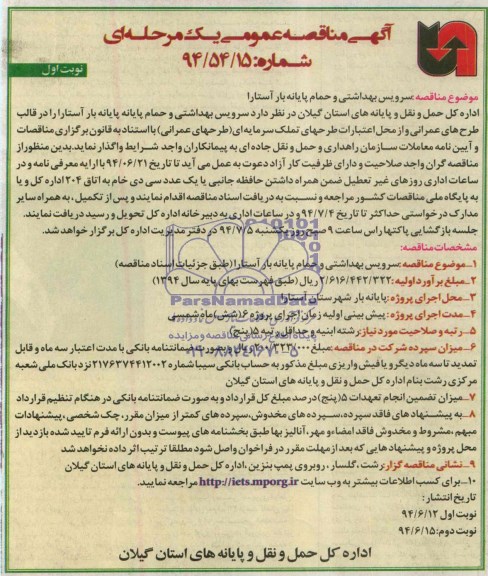 آگهی مناقصه عمومی یک مرحله‌ای
شماره: ۹۴/۵۴/۱۵
نوبت اول
موضوع مناقصه: سرویس بهداشتی و حمام پایانه بار آستارا
اداره کل حمل و نقل و پایانه های استان گیلان در نظر دارد سرویس بهداشتی و حمام پایانه پایانه بار آستارا را در قالب
طرح‌های عمرانی و از محل اعتبارات طرحهای تملک سرمایه ای (طرحهای عمرانی) با استناد به قانون برگزاری مناقصات
و آیین نامه معاملات سازمان راهداری و حمل و نقل جاده ای به پیمانکاران واجد شرایط واگذار نماید. بدین منظور از
مناقصه گران واجد صلاحیت و دارای ظرفیت کار آزاد دعوت به عمل می آید تا تاریخ ۹۴/۰۶/۲۱ با ارایه معرفی نامه و در
ساعات اداری روزهای غیر تعطیل ضمن همراه داشتن حافظه جانبی یا یک عدد سی دی خام به اتاق ۲۰۴ اداره کل و یا
به پایگاه ملی مناقصات کشور مراجعه و نسبت به دریافت اسناد مناقصه اقدام نمایند و پس از تکمیل، به همراه سایر
مدارک درخواستی حداکثر تا تاریخ ۹۴/۷/۴ و در ساعات اداری به دبیرخانه اداره کل تحویل و رسید دریافت نمایند.
جلسه بازگشایی پاکتها راس ساعت ۹ صبح روز یکشنبه ۹۴/۷/۵ در دفتر مدیریت اداره کل برگزار خواهد شد.
مشخصات مناقصه:
۱_موضوع مناقصه: سرویس بهداشتی و حمام پایانه بار آستارا (طبق جزئیات اسناد مناقصه)
۲_مبلغ برآورد اولیه: ۲/۶۱۶/۴۴۲/۳۲۲ ریال (طبق فهرست بهای پایه سال ۱۳۹۴)
۳_محل اجرای پروژه: پایانه بار شهرستان آستارا
۴_مدت اجرای پروژه: پیش بینی اولیه زمان اجرای پروژه ۶ (شش) ماه شمسی
۵_رتبه و صلاحیت مورد نیاز: رشته ابنیه و حداقل رتبه ۵ (پنج)
۶_میزان سپرده شرکت در مناقصه: مبلغ ریال و بصورت ضمانتنامه بانکی با مدت اعتبار سه ماه و قابل
تمدید تا سه ماه دیگر و یا فیش واریزی مبلغ مذکور به حساب بانکی سیبا شماره ۲۱۷۶۳۷۴۴۱۲۰۰۲ نزد بانک ملی شعبه
مرکزی رشت بنام اداره کل حمل و نقل و پایانه های استان گیلان
۷_میزان تضمین انجام تعهدات ۵ (پنج) درصد مبلغ کل قرارداد و به صورت ضمانتنامه بانکی در هنگام تنظیم قرارداد
۸_به پیشنهاد های فاقد سپرده، سپرده های مخدوش، سپرده های کمتر از میزان مقرر، چک شخصی، پیشنهادات
مبهم، مشروط و مخدوش فاقد امضاء و مهر، آنالیز بها طبق بخشنامه های پیوست و بدون ارائه فرم تایید شده بازدید از
محل پروژه و پیشنهاد هایی که بعد از مهلت مقرر در فراخوان واصل شود مطلقا ترتیب اثر داده نخواهد شد
۹_نشانی مناقصه گزار: رشت، گلسار، روبروی پمپ بنزین، اداره کل حمل و نقل و پایانه های استان گیلان
۱۰_برای کسب اطلاعات بیشتر به وب سایت http://iets.mporg.ir مراجعه نمایید.
تاریخ انتشار:
نوبت اول ۹۴/۶/۱۲
نوبت دوم: ۹۴/۶/۱۵
اداره کل حمل و نقل و پایانه های استان گیلان
ParsNamadData